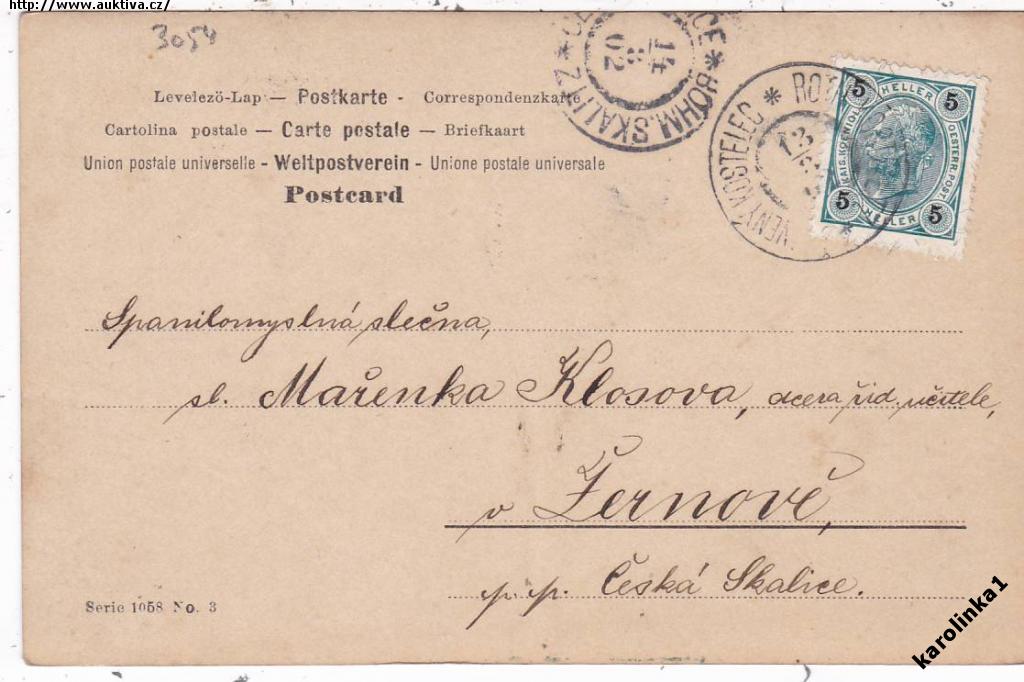 http://www.auktiva.cz/
3054
BÖHM. SKALITZ * ČE
ICE *
14
02
ČERVENÝ KOSTELEC * ROT
13
5 HELLER 5
KAIS. KOENIGL. OESTERR. POST.
5 HELLER 5
Levelező-Lap — Postkarte - Correspondenzkarte
Cartolina postale — Carte postale — Briefkaart
Union postale universelle - Weltpostverein - Unione postale universale
Postcard
Spanilomyslná slečna,
sl. Mařenka Klosova, dcera říd. učitele,
v Žernově,
p. p. Česká Skalice.
Serie 1058 No. 3
karolinka1